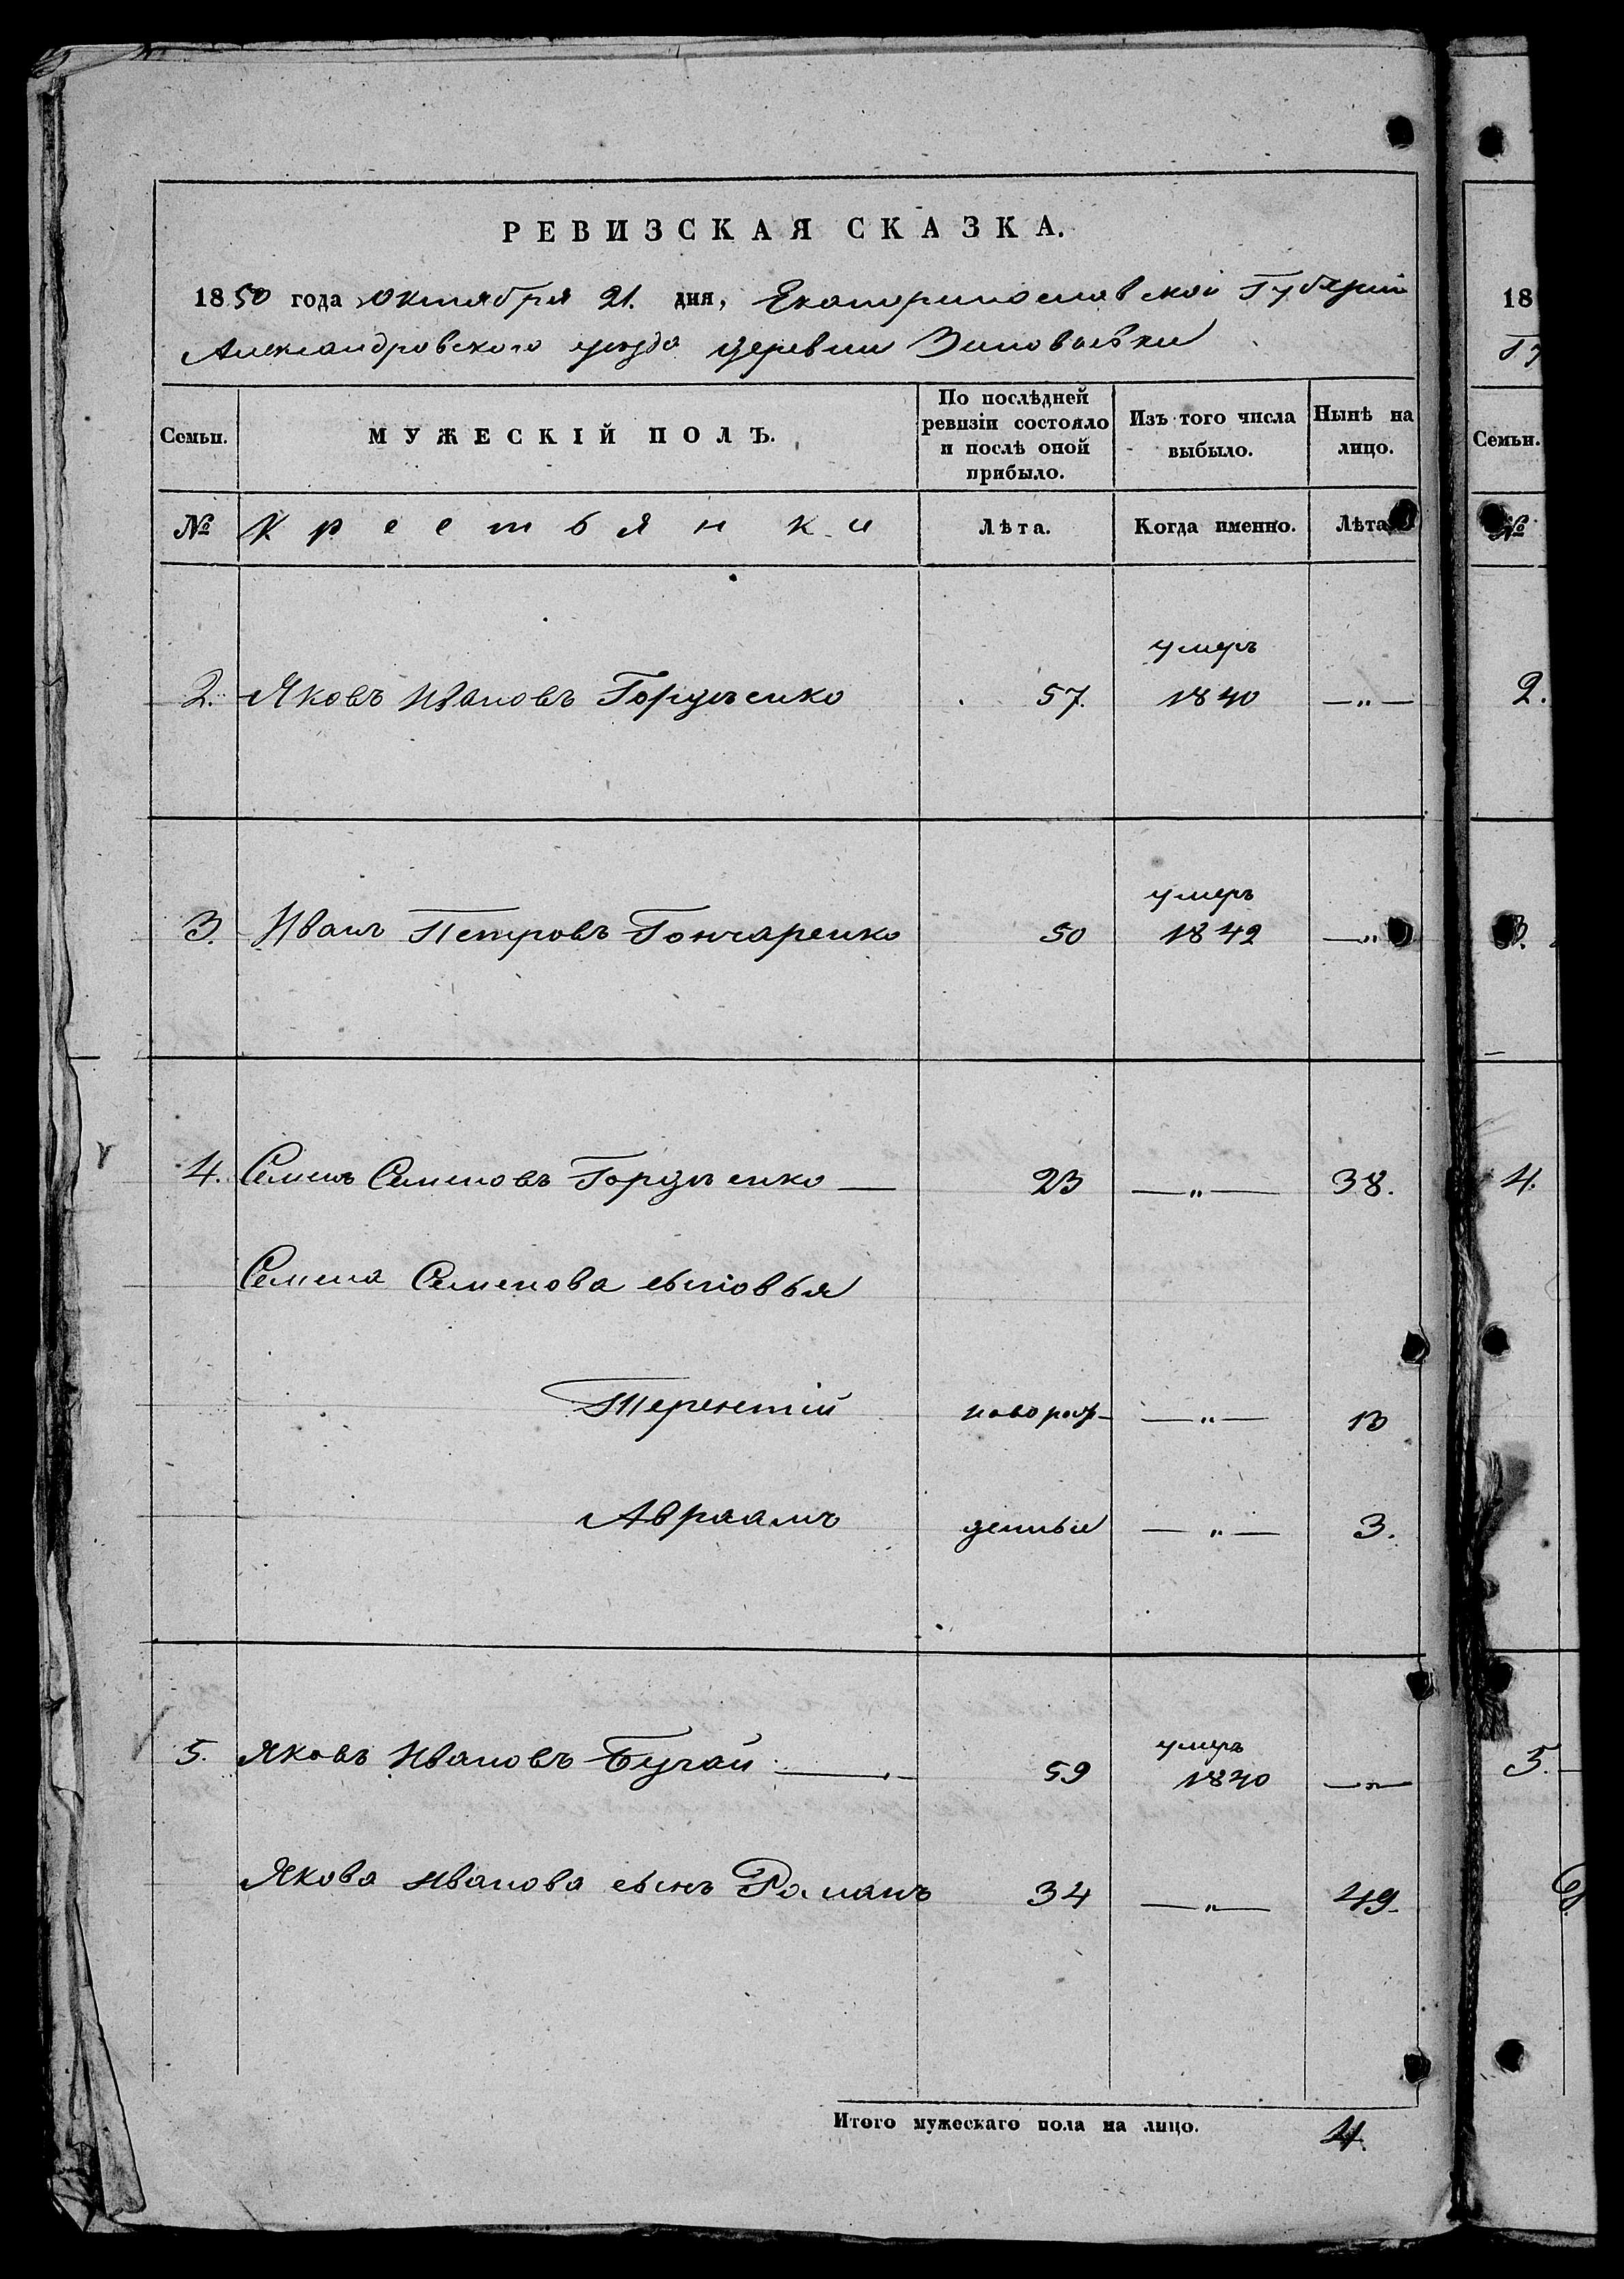 РЕВИЗСКАЯ СКАЗКА.
1850 года октября 21. дня, Екатеринославской Губерніи
Александровского уезда деревни Зиновьевки
Семьи. МУЖЕСКІЙ ПОЛЪ. По послѣдней ревизіи состояло и послѣ оной прибыло. Изъ того числа выбыло. Нынѣ на лицо.
№ Крестьян ки Лѣта. Когда именно. Лѣта
умеръ
2. Яковъ Ивановъ 57. 1840 —"—
умеръ
3. Иванъ Петровъ Гончаренко 50 1842 —"
4. Семенъ Семеновъ 23 —"— 38.
Семена Семенова сыновья
Терентій новорож- —"— 13
Авраамъ денные —"— 3.
умеръ
5. Яковъ Ивановъ Бугай 59 1840 —"—
Якова Иванова сынъ Романъ 34 —"— 49.
Итого мужескаго пола на лицо. 4.
18
Семьи.
№
2.
3.
4.
5.